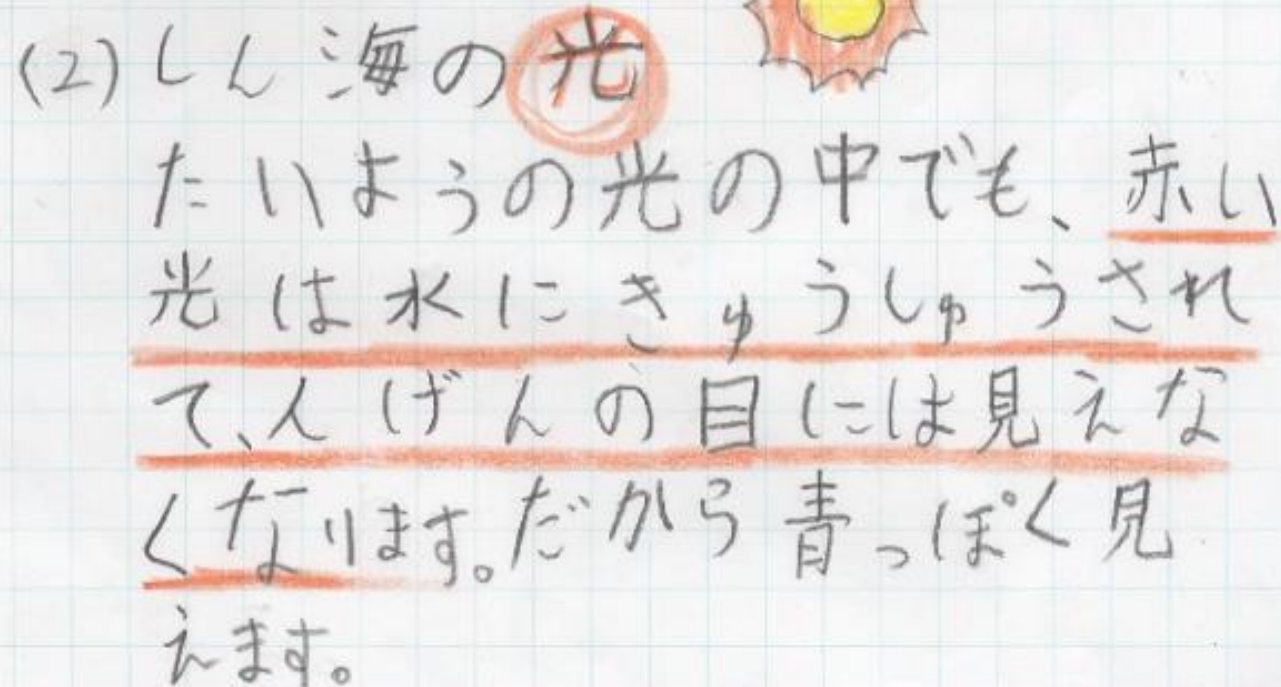 (2)しん海の光
たいようの光の中でも、赤い
光は水にきゅうしゅうされ
て、人げんの目には見えな
くなります。だから青っぽく見
えます。